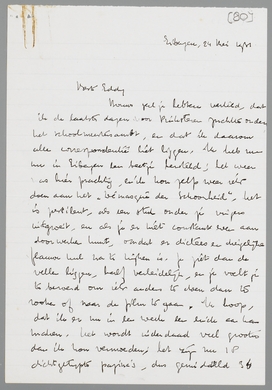 [80]
Eibergen, 24 Mei 1951
Beste Eddy
Mans zal je hebben verteld, dat
ik de laatste dagen voor Pinksteren zuchtte onder
het schoolmeestersambt, en dat ik daarom
alle correspondentie liet liggen. Ik heb me
nu in Eibergen een beetje hersteld; het weer
was hier prachtig, en ik kon zelfs weer iets
doen aan het " van de Schoonheid". Het
is pestilent, als een stuk onder je vingers
uitgroeit, en als je er niet continu aan
door werken kunt, omdat er dictees en dergelijke
flauwe kul na te kijken is. Je zit dan de
vellen liggen, half verleidelijk, en je voelt je
te beroerd om iets anders te doen dan te
roken of naar de film te gaan. Ik hoop,
dat ik er nu in een week een einde aan kan
maken. Het wordt inderdaad veel groter
dan ik kon vermoeden; het zijn nu 18
dichtgetypte pagina's, dus gemiddeld 36